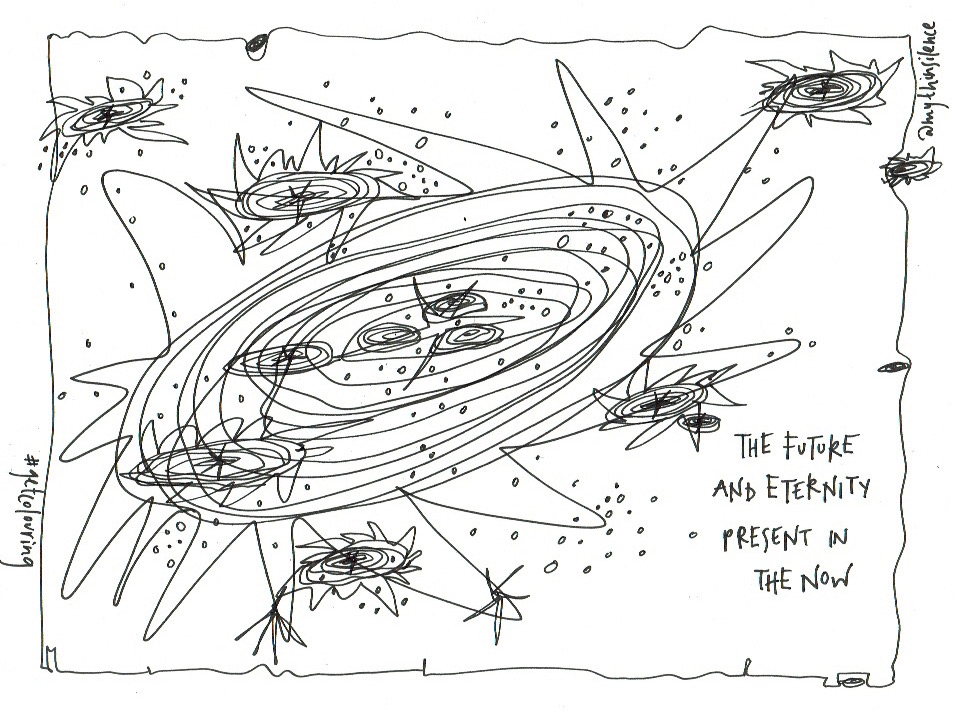 @mythinsilence
THE FUTURE
AND ETERNITY
PRESENT IN
THE NOW
#gettolovring